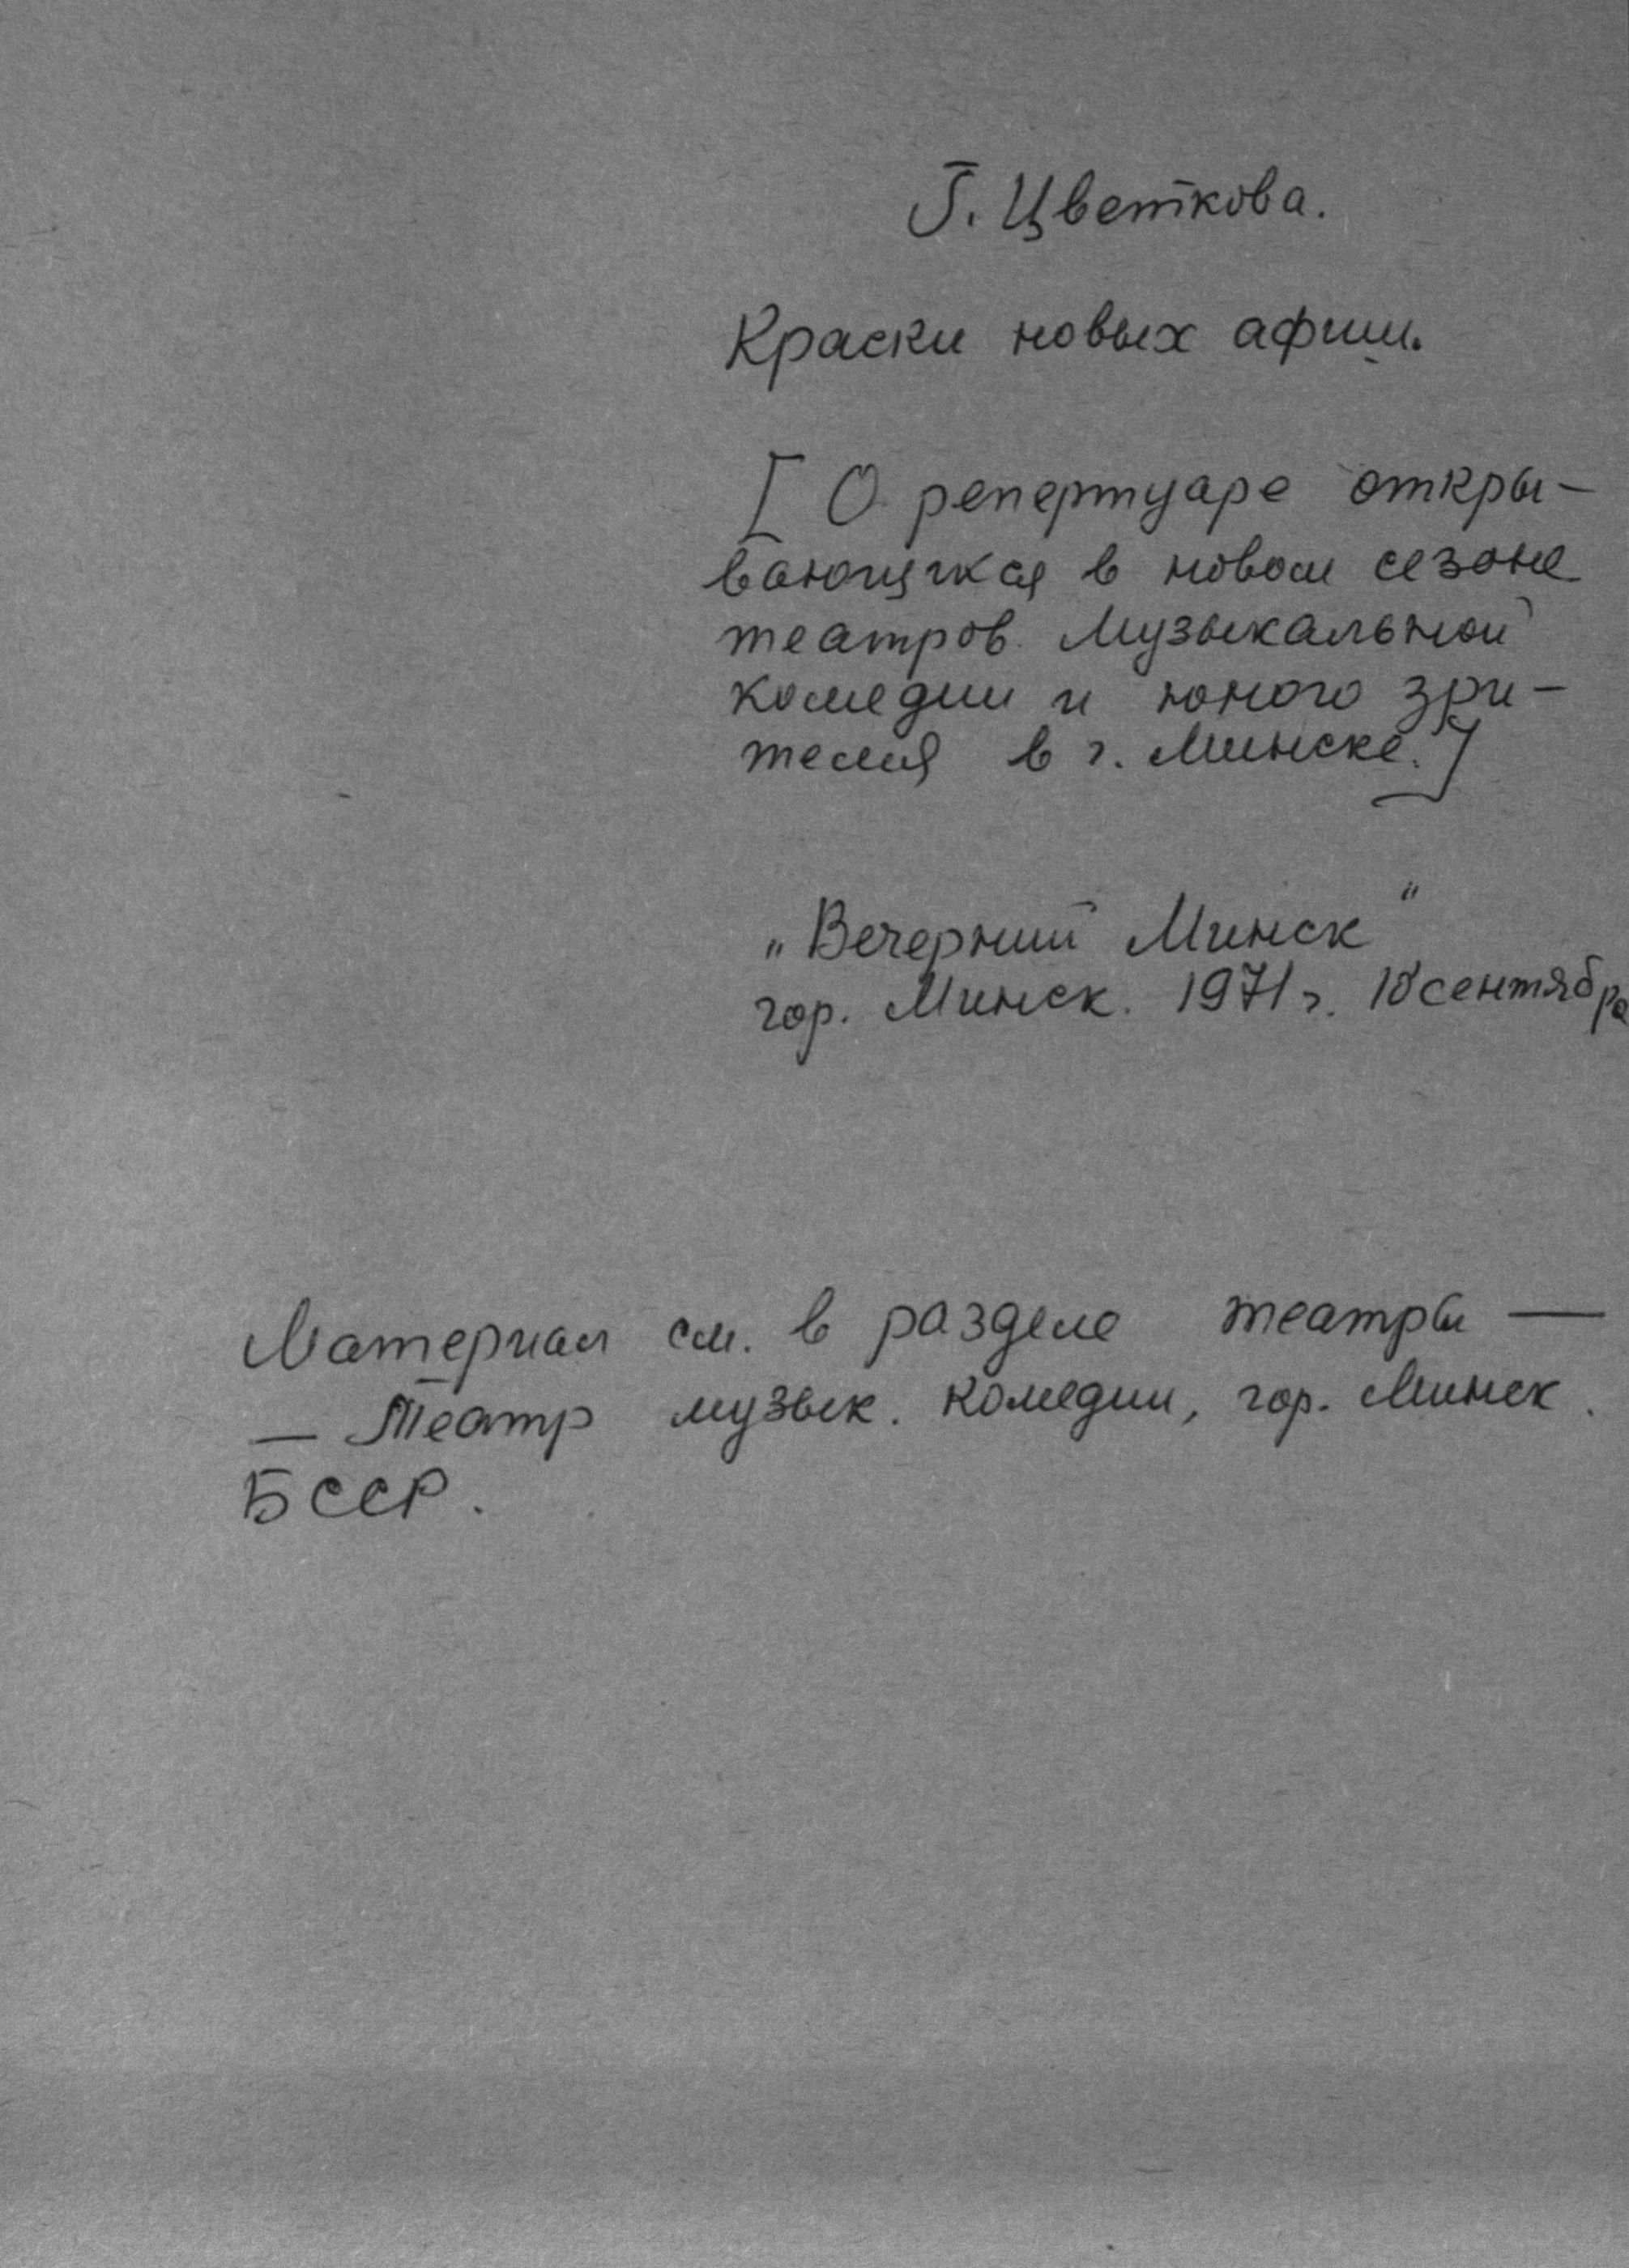 Г. Цветкова.
Краски новых афиш.
[ О репертуаре откры-
вающихся в новом сезоне
театров Музыкальной
комедии и юного зри-
теля в г. Минске.]
„Вечерний Минск"
гор. Минск. 1971 г. 18 сентября
Материал см. в разделе театры —
— Театр музык. комедии, гор. Минск.
БССР.